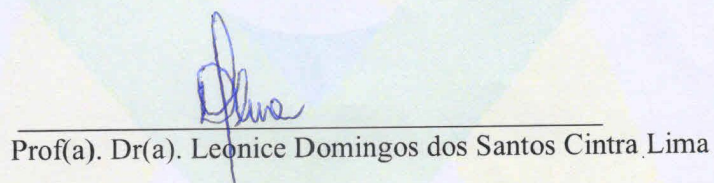 Prof(a). Dr(a). Leonice Domingos dos Santos Cintra Lima